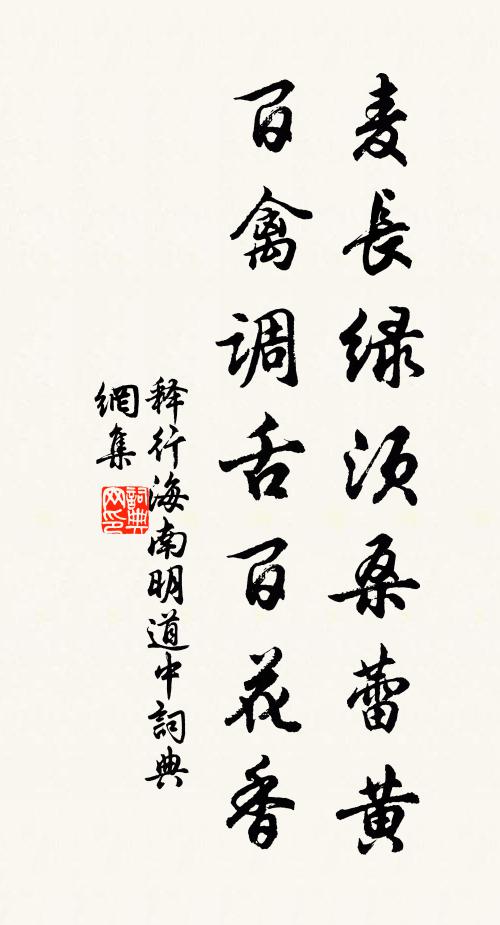 麦長緑須桑蕾黄
百禽調舌百花香
释行海南明道中詞典
網集
詞典
网印